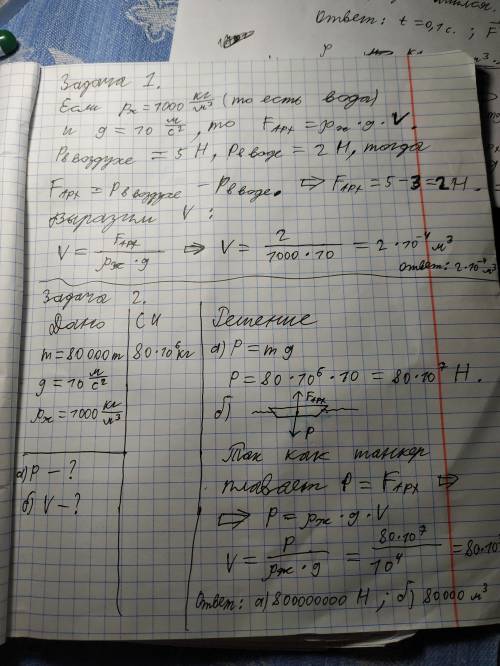 Ответ: t = 0,1 с. ; F
Задача 1.
Если ρж = 1000 кг/м³ (то есть вода)
и g = 10 м/с², то Fарх = ρж · g · V.
Pв воздухе = 5 Н, Pв воде = 2 Н, тогда
Fарх = Pв воздухе − Pв воде. ⇒ Fарх = 5 − 3 = 2 Н.
Выразим V:
V = Fарх / ρж · g ⇒ V = 2 / 1000 · 10 = 2 · 10⁻⁴ м³
ответ: 2 · 10⁻⁴ м³
Задача 2.
Дано
m = 80 000 т
g = 10 м/с²
ρж = 1000 кг/м³
а) P − ?
б) V − ?
СИ
80 · 10⁶ кг
Решение
а) P = mg
P = 80 · 10⁶ · 10 = 80 · 10⁷ Н.
б) Fарх
P
Так как танкер
плавает P = Fарх ⇒
⇒ P = ρж · g · V
V = P / ρж · g = 80 · 10⁷ / 10⁴ = 80 · 10
Ответ: а) 800000000 Н ; б) 80000 м³